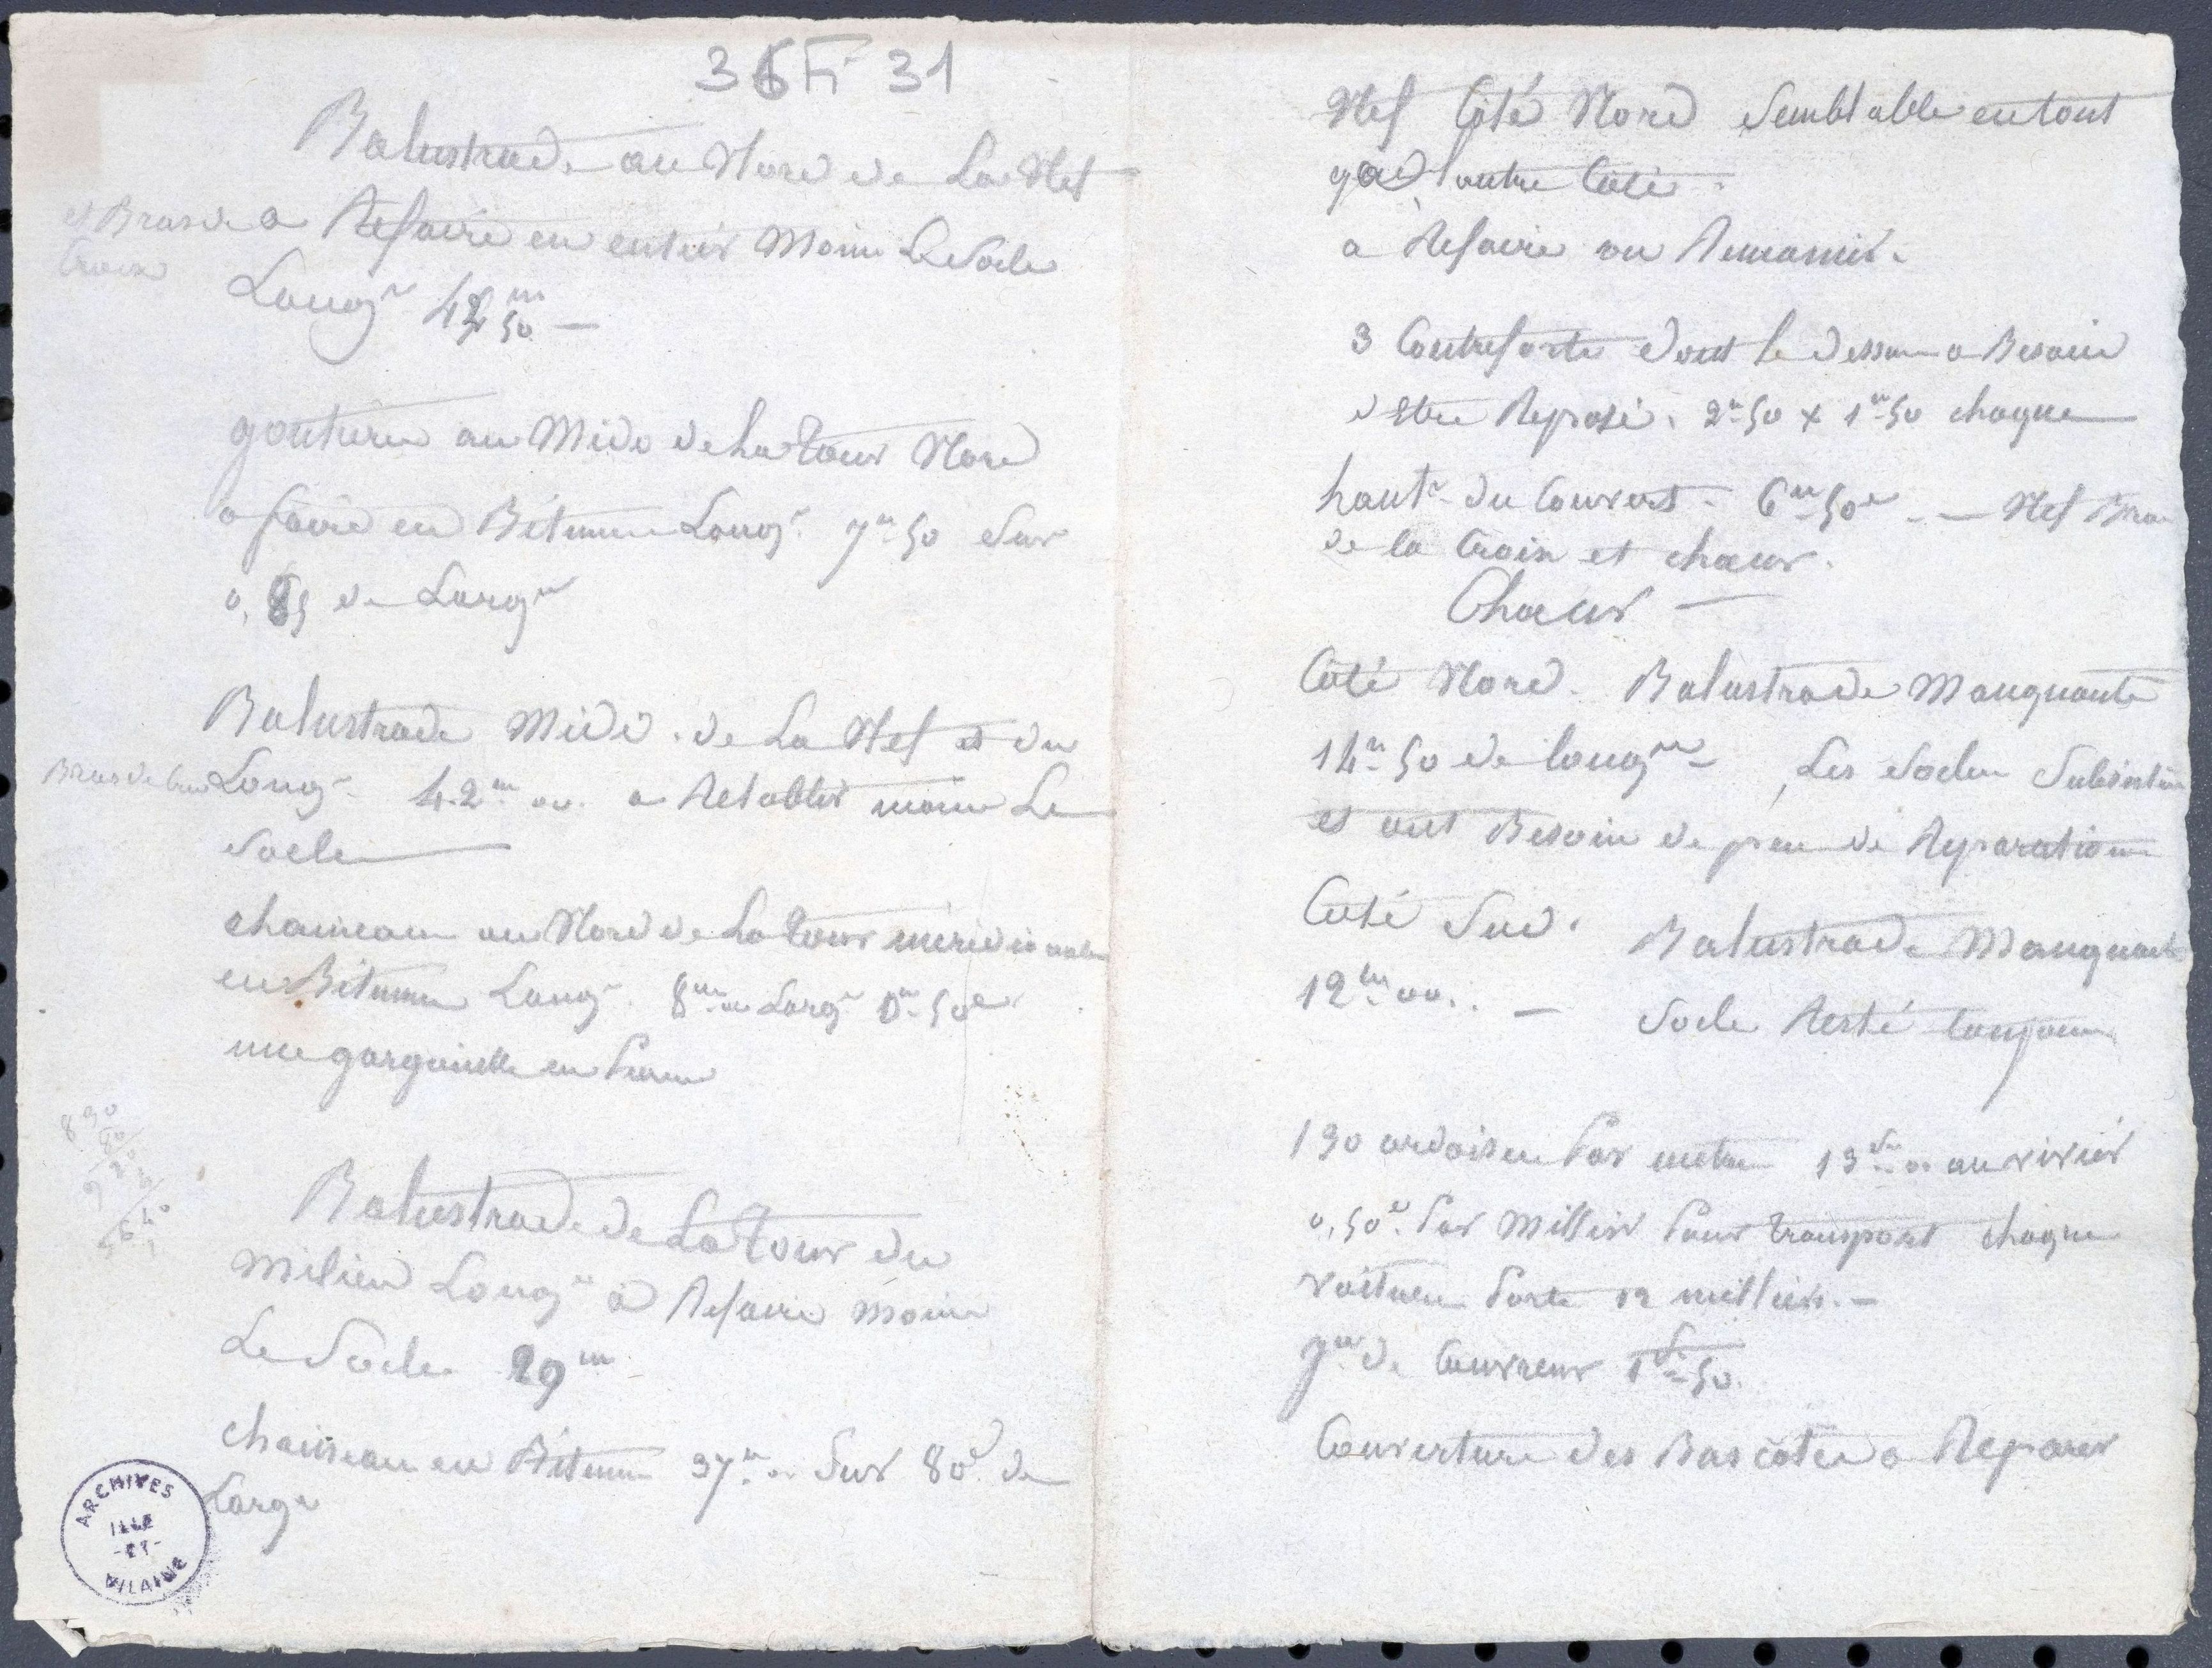 36 Fi 31
Balustrade au Nord de La Nef
et Bras de a Refaire en entier Moins Le Socle
Croix
Longr 42m 50 —
goutière au Midi de La Tour Nord
a faire en Bitume Longr 7m 50 Sur
0,85 de Largr
Balustrade Midi de La Nef et du
Bras de Croix Longr 42m 00. a Retablir moins Le
Socle
chaineau au Nord de La Tour meridionale
en Bitume Longr 8m 00 Largr 0m 50c
une gargouille en Pierre
890
80
Balustrade de La Tour du
Milieu Longr a Refaire Moins
Le Socle 29m
chaineau en Bitume 37m 00 Sur 80c de
Largr
ARCHIVES
ILLE
-ET-
VILAINE
Nef Coté Nord Semblable en tout
l'autre Coté.
a Refaire ou Remanier.
3 Contreforts dont le dessus a Besoin
d'Etre Reposé. 2m 50 x 1m 50 chaque
hautr du Couvert - 6m 50c - — Nef Bras
de la Croix et chœur.
Chœur —
Coté Nord. Balustrade Manquante
14m 50 de longr Les Socles Subsistent
et ont Besoin de peu de Reparations
Coté Sud. Balustrade Manquante
12m 00. — Socle Resté toujours
130 ardoises Par metre 13f 00 au vivier
0,50c Par Millier Pour transport chaque
voiture Porte 12 milliers. —
jnée de Couvreur 1f 50.
Couverture des Bas cotés a Reparer